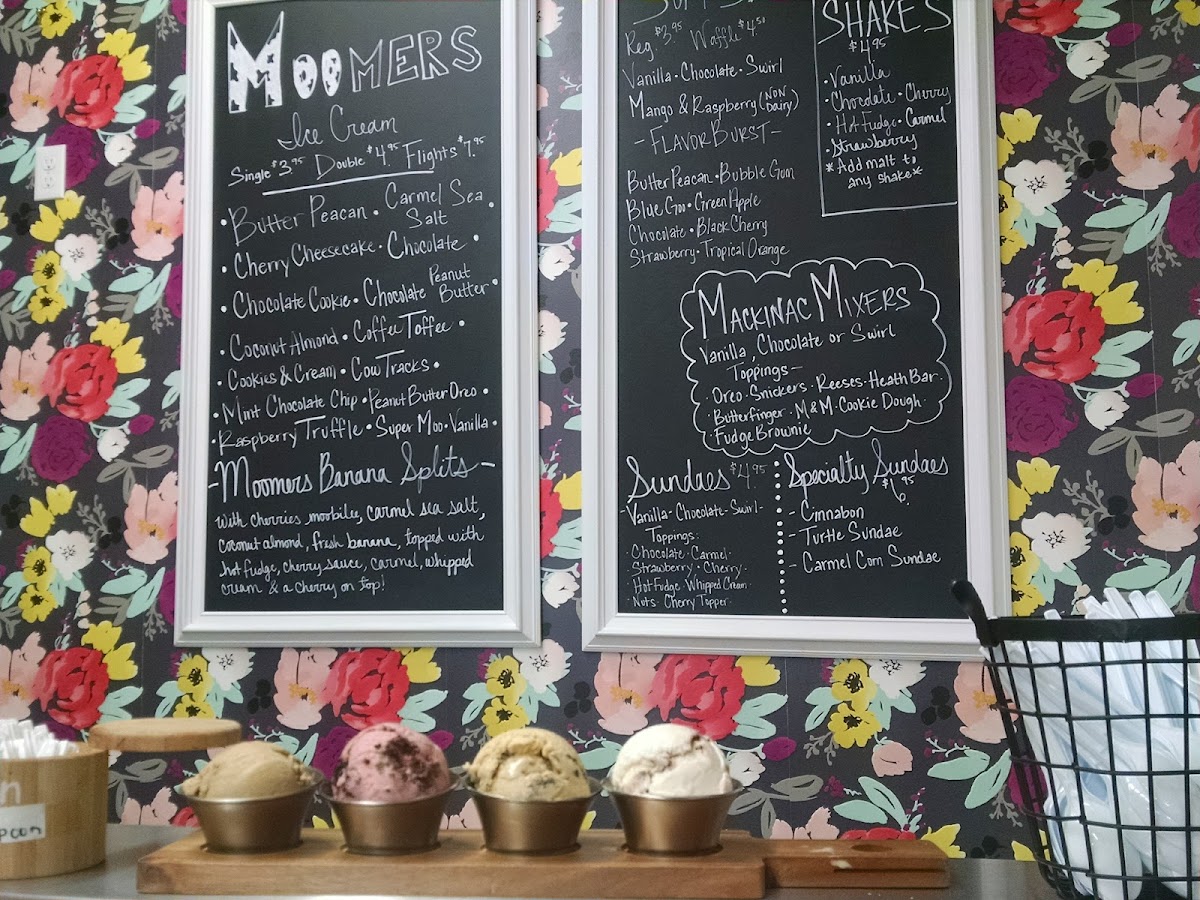 MOOMERS
Ice Cream
Single $3.95 Double $4.95 Flights $7.95
• Butter Peacan • Carmel Sea Salt •
• Cherry Cheesecake • Chocolate •
• Chocolate Cookie • Chocolate Peanut Butter •
• Coconut Almond • Coffee Toffee •
• Cookies & Cream • Cow Tracks •
• Mint Chocolate Chip • Peanut Butter Oreo •
• Raspberry Truffle • Super Moo • Vanilla •
- Moomers Banana Splits -
with cherries moobilee, carmel sea salt,
coconut almond, fresh banana, topped with
hot fudge, cherry sauce, carmel, whipped
cream & a cherry on top!
Reg. $3.95 Waffle $4.50
Vanilla • Chocolate • Swirl
Mango & Raspberry (NON Dairy)
- FLAVOR BURST -
Butter Peacan • Bubble Gum
Blue Goo • Green Apple
Chocolate • Black Cherry
Strawberry • Tropical Orange
SHAKES
$4.95
• Vanilla
• Chocolate • Cherry
• Hot Fudge • Carmel
• Strawberry
*Add malt to
any shake*
MACKINAC MIXERS
Vanilla, Chocolate or Swirl
Toppings -
• Oreo • Snickers • Reeses • Heath Bar •
• Butterfinger • M&M • Cookie Dough •
• Fudge Brownie
Sundaes $4.95
- Vanilla - Chocolate - Swirl -
Toppings:
• Chocolate • Carmel •
• Strawberry • Cherry •
• Hot Fudge • Whipped Cream •
• Nuts • Cherry Topper •
Specialty Sundaes
$6.95
- Cinnabon
- Turtle Sundae
- Carmel Corn Sundae